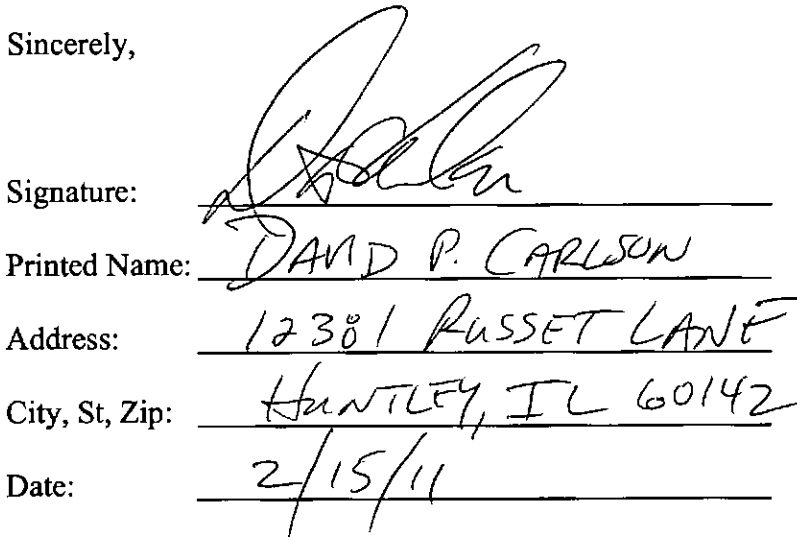 Sincerely,
Signature:
Printed Name: DAVID P. CARLSON
Address: 12381 RUSSET LANE
City, St, Zip: HUNTLEY, IL 60142
Date: 2/15/11